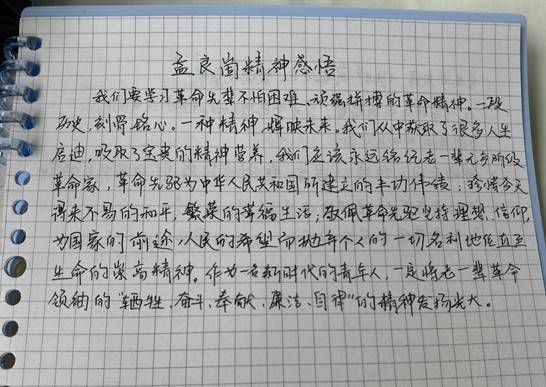 孟良崮精神感悟
我们要学习革命先辈不怕困难、顽强拼搏的革命精神。一段
历史,刻骨铭心。一种精神,辉映未来。我们从中获取了很多人生
启迪,吸取了宝贵的精神营养。我们应该永远铭记老一辈无产阶级
革命家,革命先驱为中华人民共和国所建立的丰功伟绩;珍惜今天
得来不易的和平,繁荣的幸福生活;敬佩革命先驱坚持理想、信仰,
为国家的前途,人民的希望而抛弃个人的一切名利地位直至
生命的崇高精神。作为一名新时代的青年人,一定将老一辈革命
领袖的“牺牲、奋斗、奉献、廉洁、自律”的精神发扬光大。